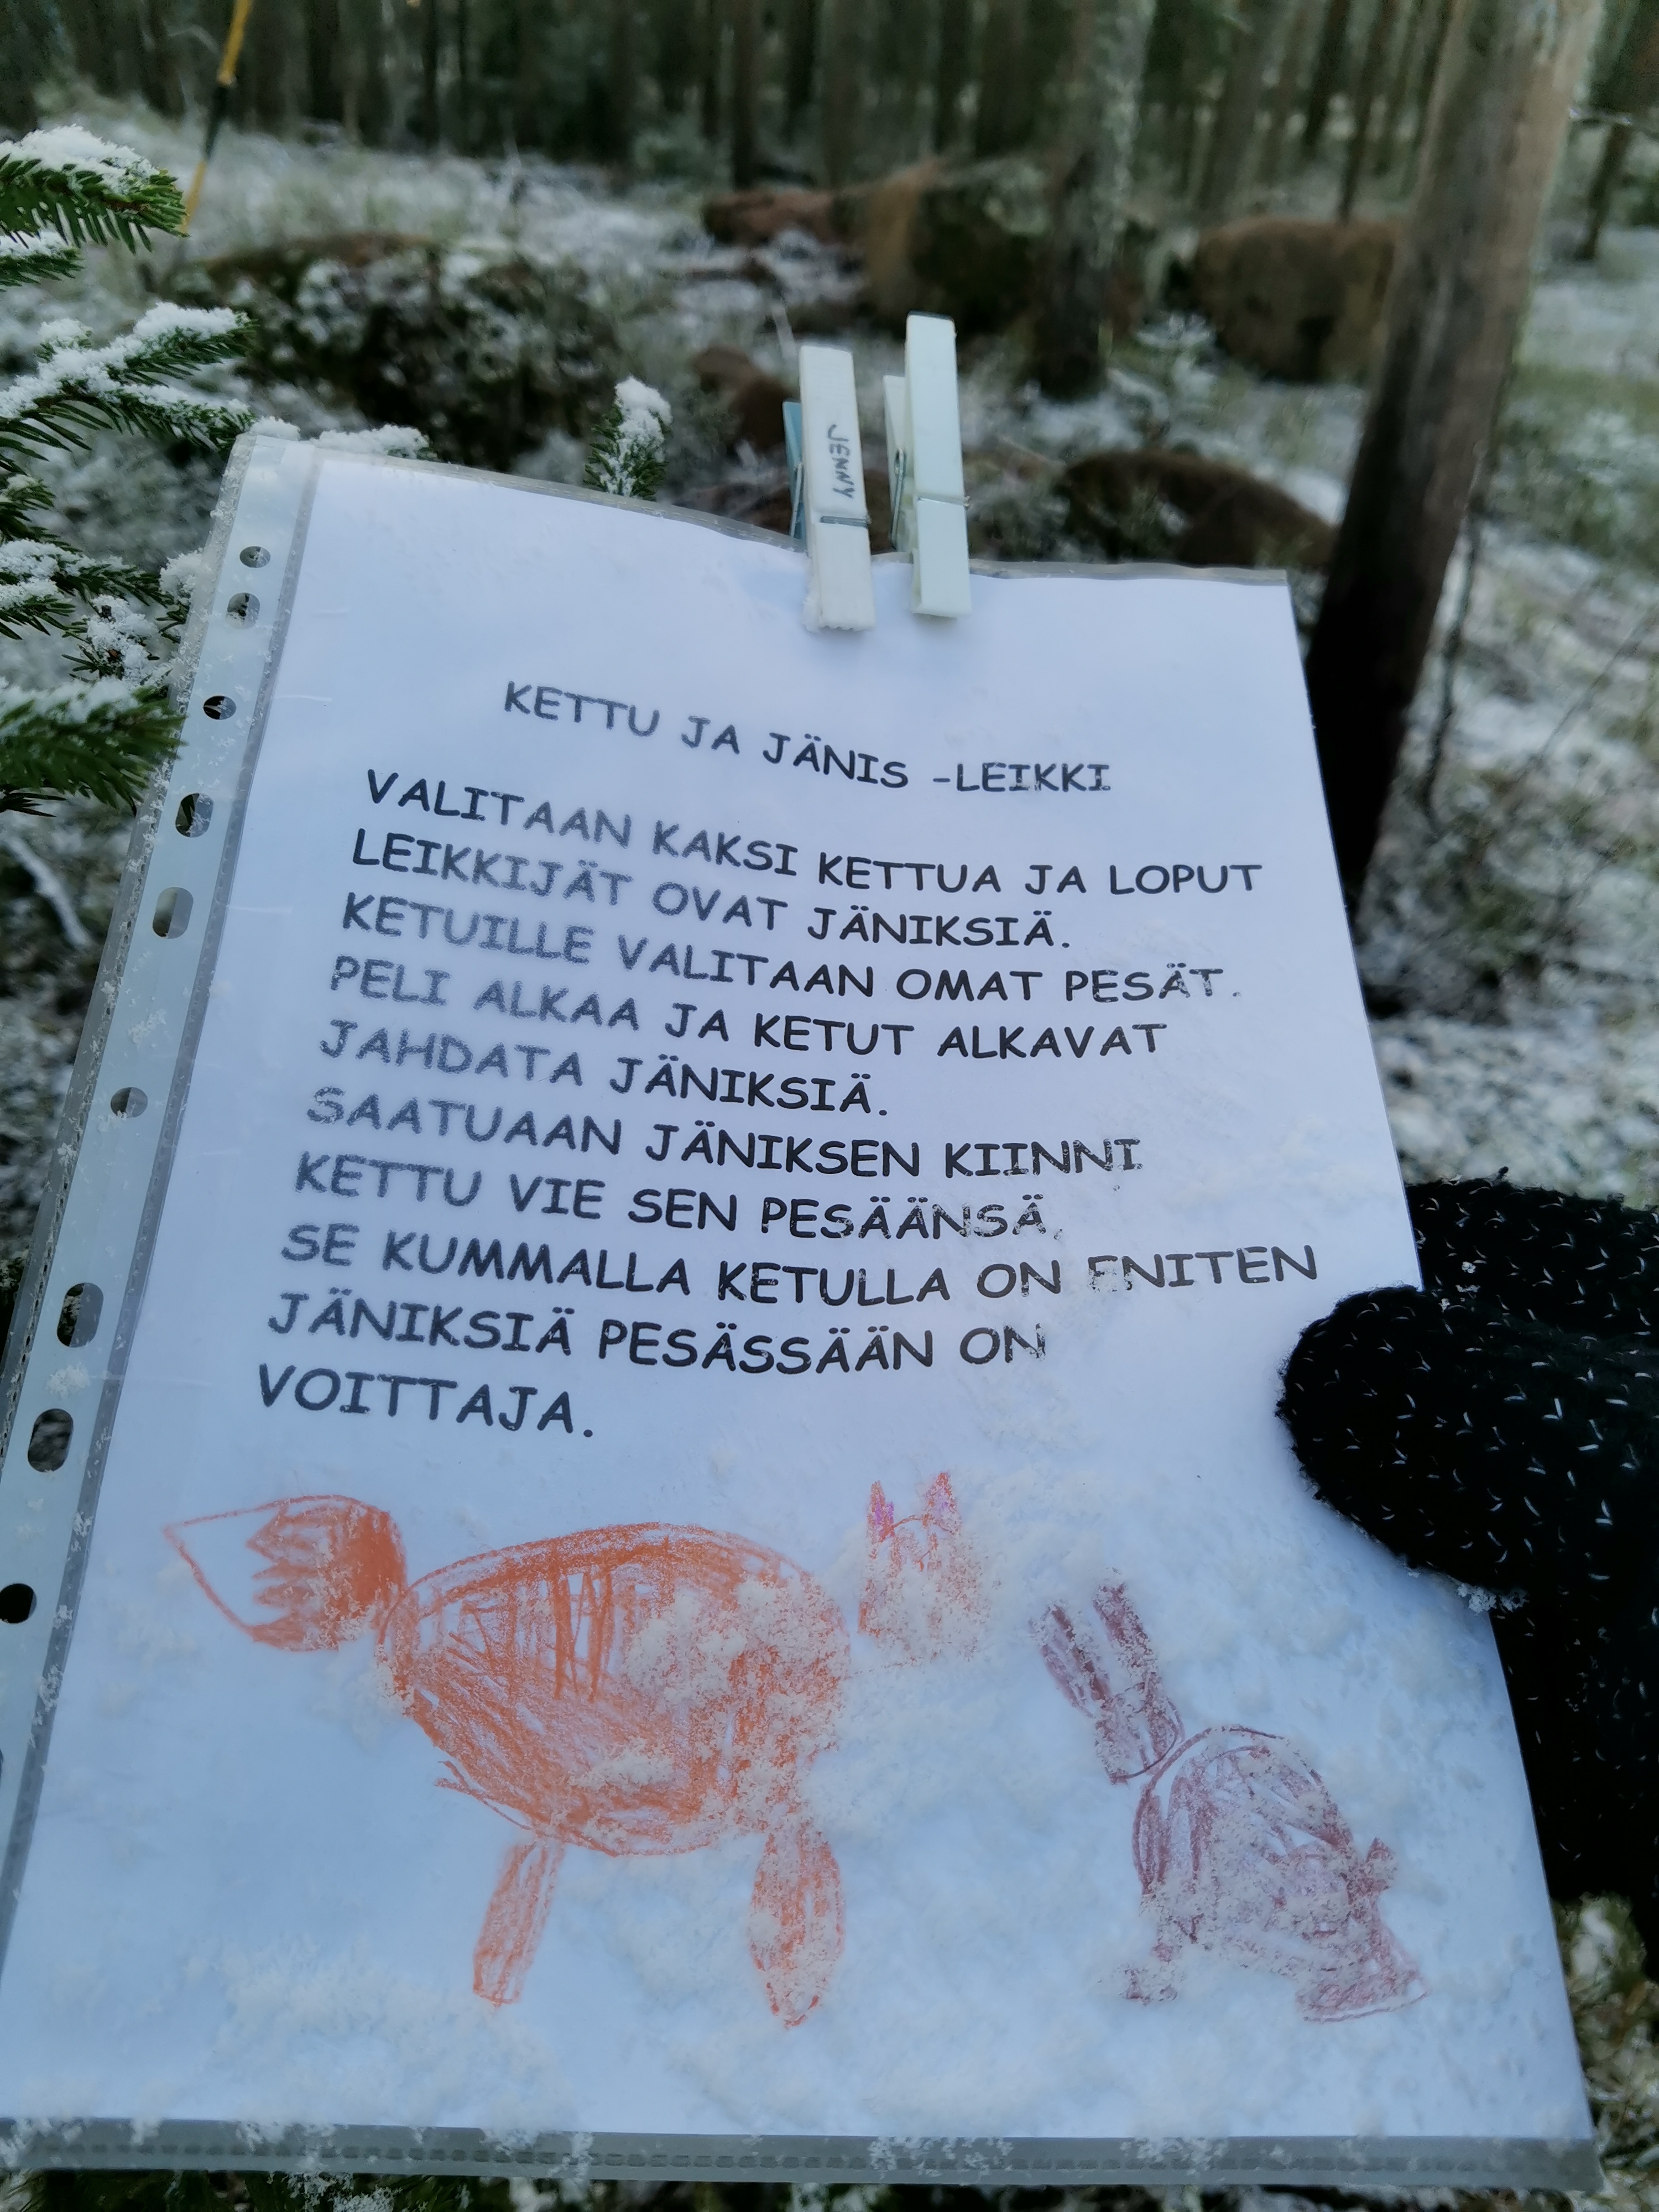 JENNY
KETTU JA JÄNIS -LEIKKI
VALITAAN KAKSI KETTUA JA LOPUT
LEIKKIJÄT OVAT JÄNIKSIÄ.
KETUILLE VALITAAN OMAT PESÄT.
PELI ALKAA JA KETUT ALKAVAT
JAHDATA JÄNIKSIÄ.
SAATUAAN JÄNIKSEN KIINNI
KETTU VIE SEN PESÄÄNSÄ.
SE KUMMALLA KETULLA ON ENITEN
JÄNIKSIÄ PESÄSSÄÄN ON
VOITTAJA.